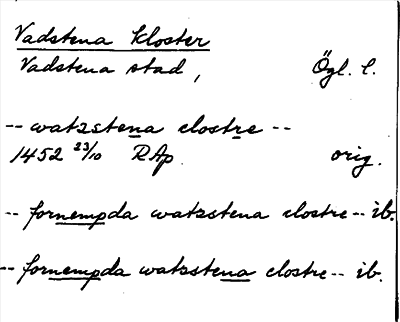 Vadstena kloster
Vadstena stad, Ögl. l.
-- watzstena clostre --
1452 23/10 RAp. orig.
-- fornempda watzstena clostre -- ib.
-- fornempda watzstena clostre -- ib.